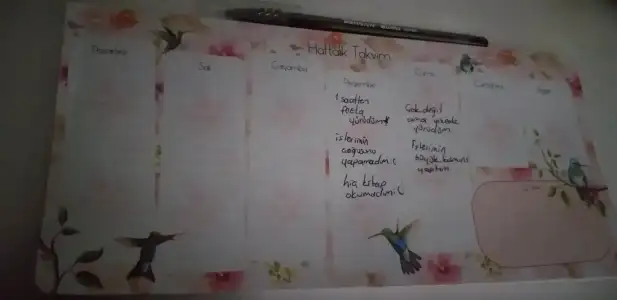 Haftalık Takvim
Pazartesi
Salı
Çarşamba
Perşembe
1 saatten
fazla
yürüdüm
işlerimin
çoğunu
yapamadım :(
hiç kitap
okumadım :(
Cuma
Çok değil
ama yine de
yürüdüm
İşlerimin
büyük kısmını
yaptım
Cumartesi
Pazar